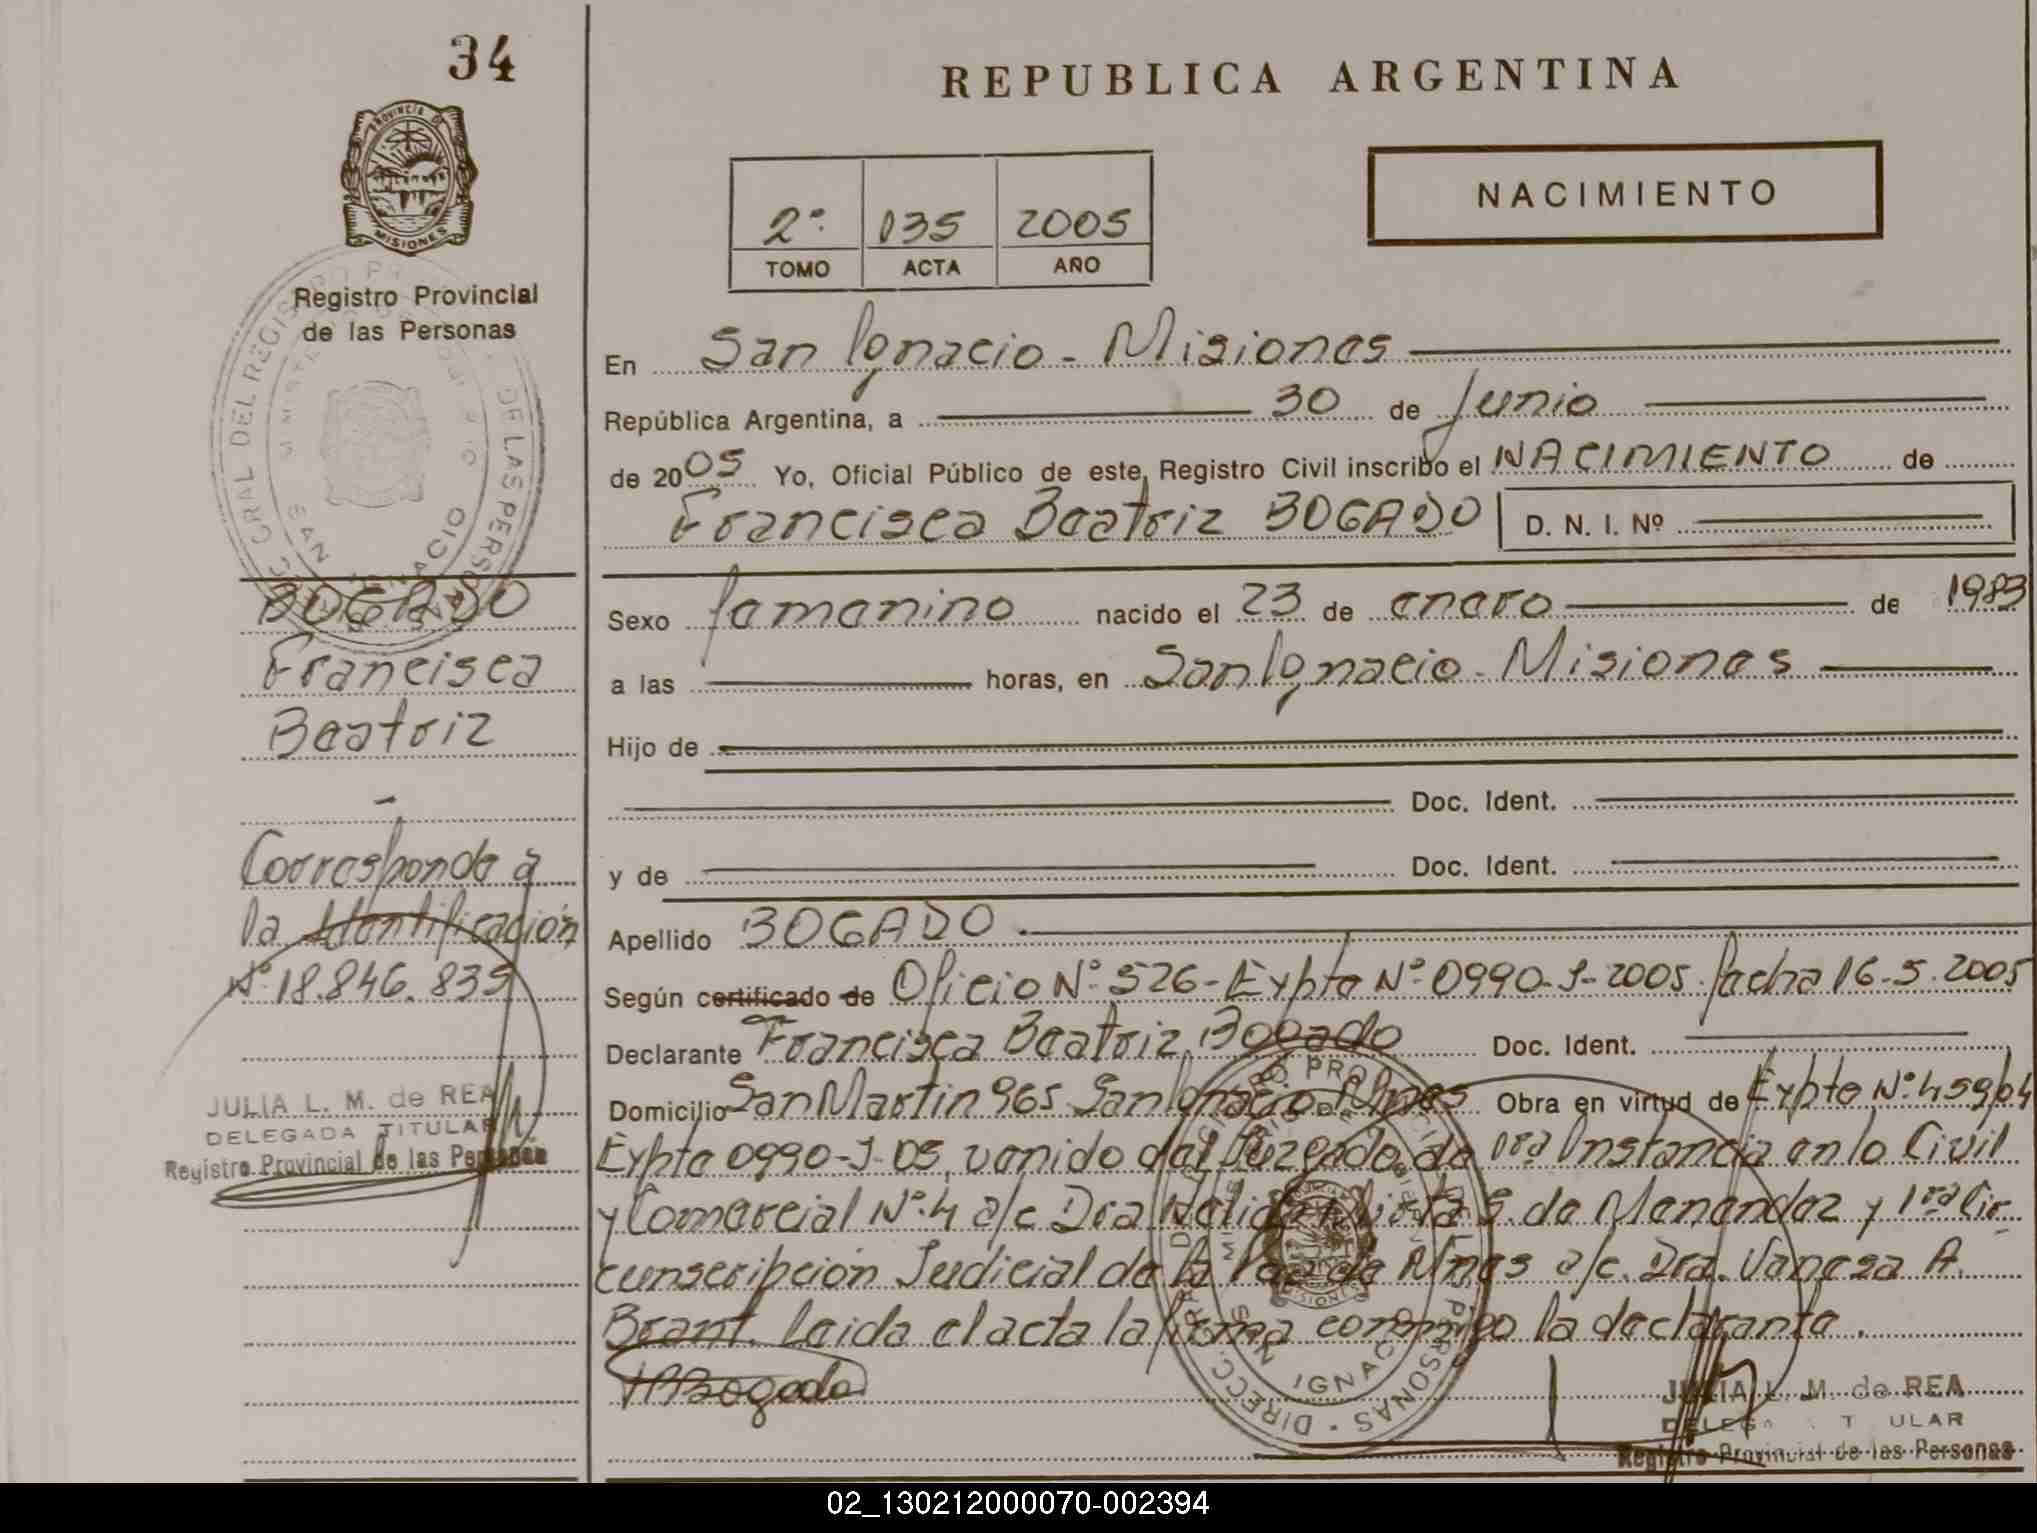 34
REPUBLICA ARGENTINA
PROVINCIA DE
MISIONES
2º 035 2005
TOMO ACTA AÑO
NACIMIENTO
Registro Provincial
de las Personas
En San Ignacio - Misiones
República Argentina, a 30 de Junio
de 2005 Yo, Oficial Público de este Registro Civil inscribo el NACIMIENTO de
Francisca Beatriz BOGADO D. N. I. Nº
BOGADO
Francisca
Beatriz
Corresponde a
la Identificación
Nº 18.846.835
JULIA L. M. de REA
DELEGADA TITULAR
Registro Provincial de las Personas
Sexo femenino nacido el 23 de enero de 1983
a las horas, en San Ignacio - Misiones
Hijo de
Doc. Ident.
y de Doc. Ident.
Apellido BOGADO
Según certificado de Oficio Nº 526 - Expte Nº 0990-J-2005. fecha 16-5-2005
Declarante Francisca Beatriz Bogado Doc. Ident.
Domicilio San Martin 965 San Ignacio Mnes Obra en virtud de Expte Nº 459/04
Expte 0990-J-05, venido del Juzgado de 1ra Instancia en lo Civil
y Comercial Nº 4 a/c Dra S. de Menendez y 1ra Cir-
cunscripción Judicial de la de Mnes a/c. Dra. Vanesa A.
Brant. Leida el acta la firma conmigo la declarante.
Bogado
SAN IGNACIO
JULIA L. M. de REA
Registro Provincial de las Personas
02_130212000070-002394